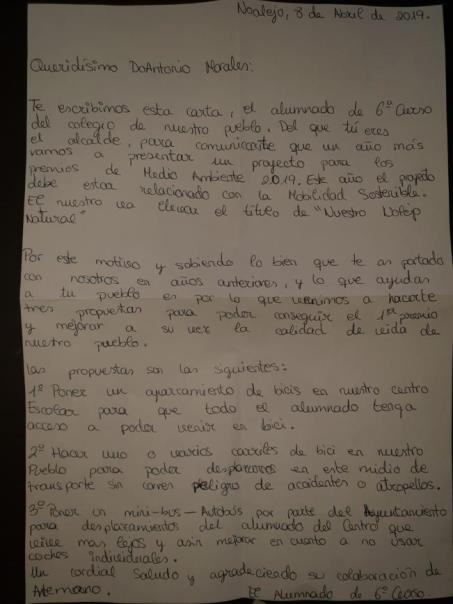 Noalejo, 8 de Abril de 2019.
Queridísimo Do Antonio Morales:
Te escribimos esta carta, el alumnado de 6º Curso
del colegio de nuestro pueblo. Del que tú eres
el alcalde, para comunicarte que un año más
vamos a presentar un proyecto para los
premios de Medio Ambiente 2019. Este año el
debe estar relacionado con la Mobilidad Sostenible.
El nuestro va llevar el título de "Nuestro
Natural"
Por este motivo y sabiendo lo bien que te as portado
con nosotros en años anteriores, y lo que ayudas
a tu pueblo es por lo que venimos a hacerte
tres propuestas para poder conseguir el 1er premio
y mejorar a su vez la calidad de vida de
nuestro pueblo.
las propuestas son las siguientes:
1º Poner un aparcamiento de bicis en nuestro centro
Escolar para que todo el alumnado tenga
acceso a poder venir en bici.
2º Hacer uno o varios carriles de bici en nuestro
Pueblo para poder desplazarnos en este midio de
transporte sin correr peligro de accidentes o atropellos.
3º Poner un mini-bus-Autobús por parte del Ayuntamiento
para desplazamientos del alumnado del Centro que
vive mas lejos y asin mejorar en cuanto a no usar
coches individuales.
Un cordial Saludo y agradeciendo su colaboración de
Atemano. El Alumnado de 6º Curso